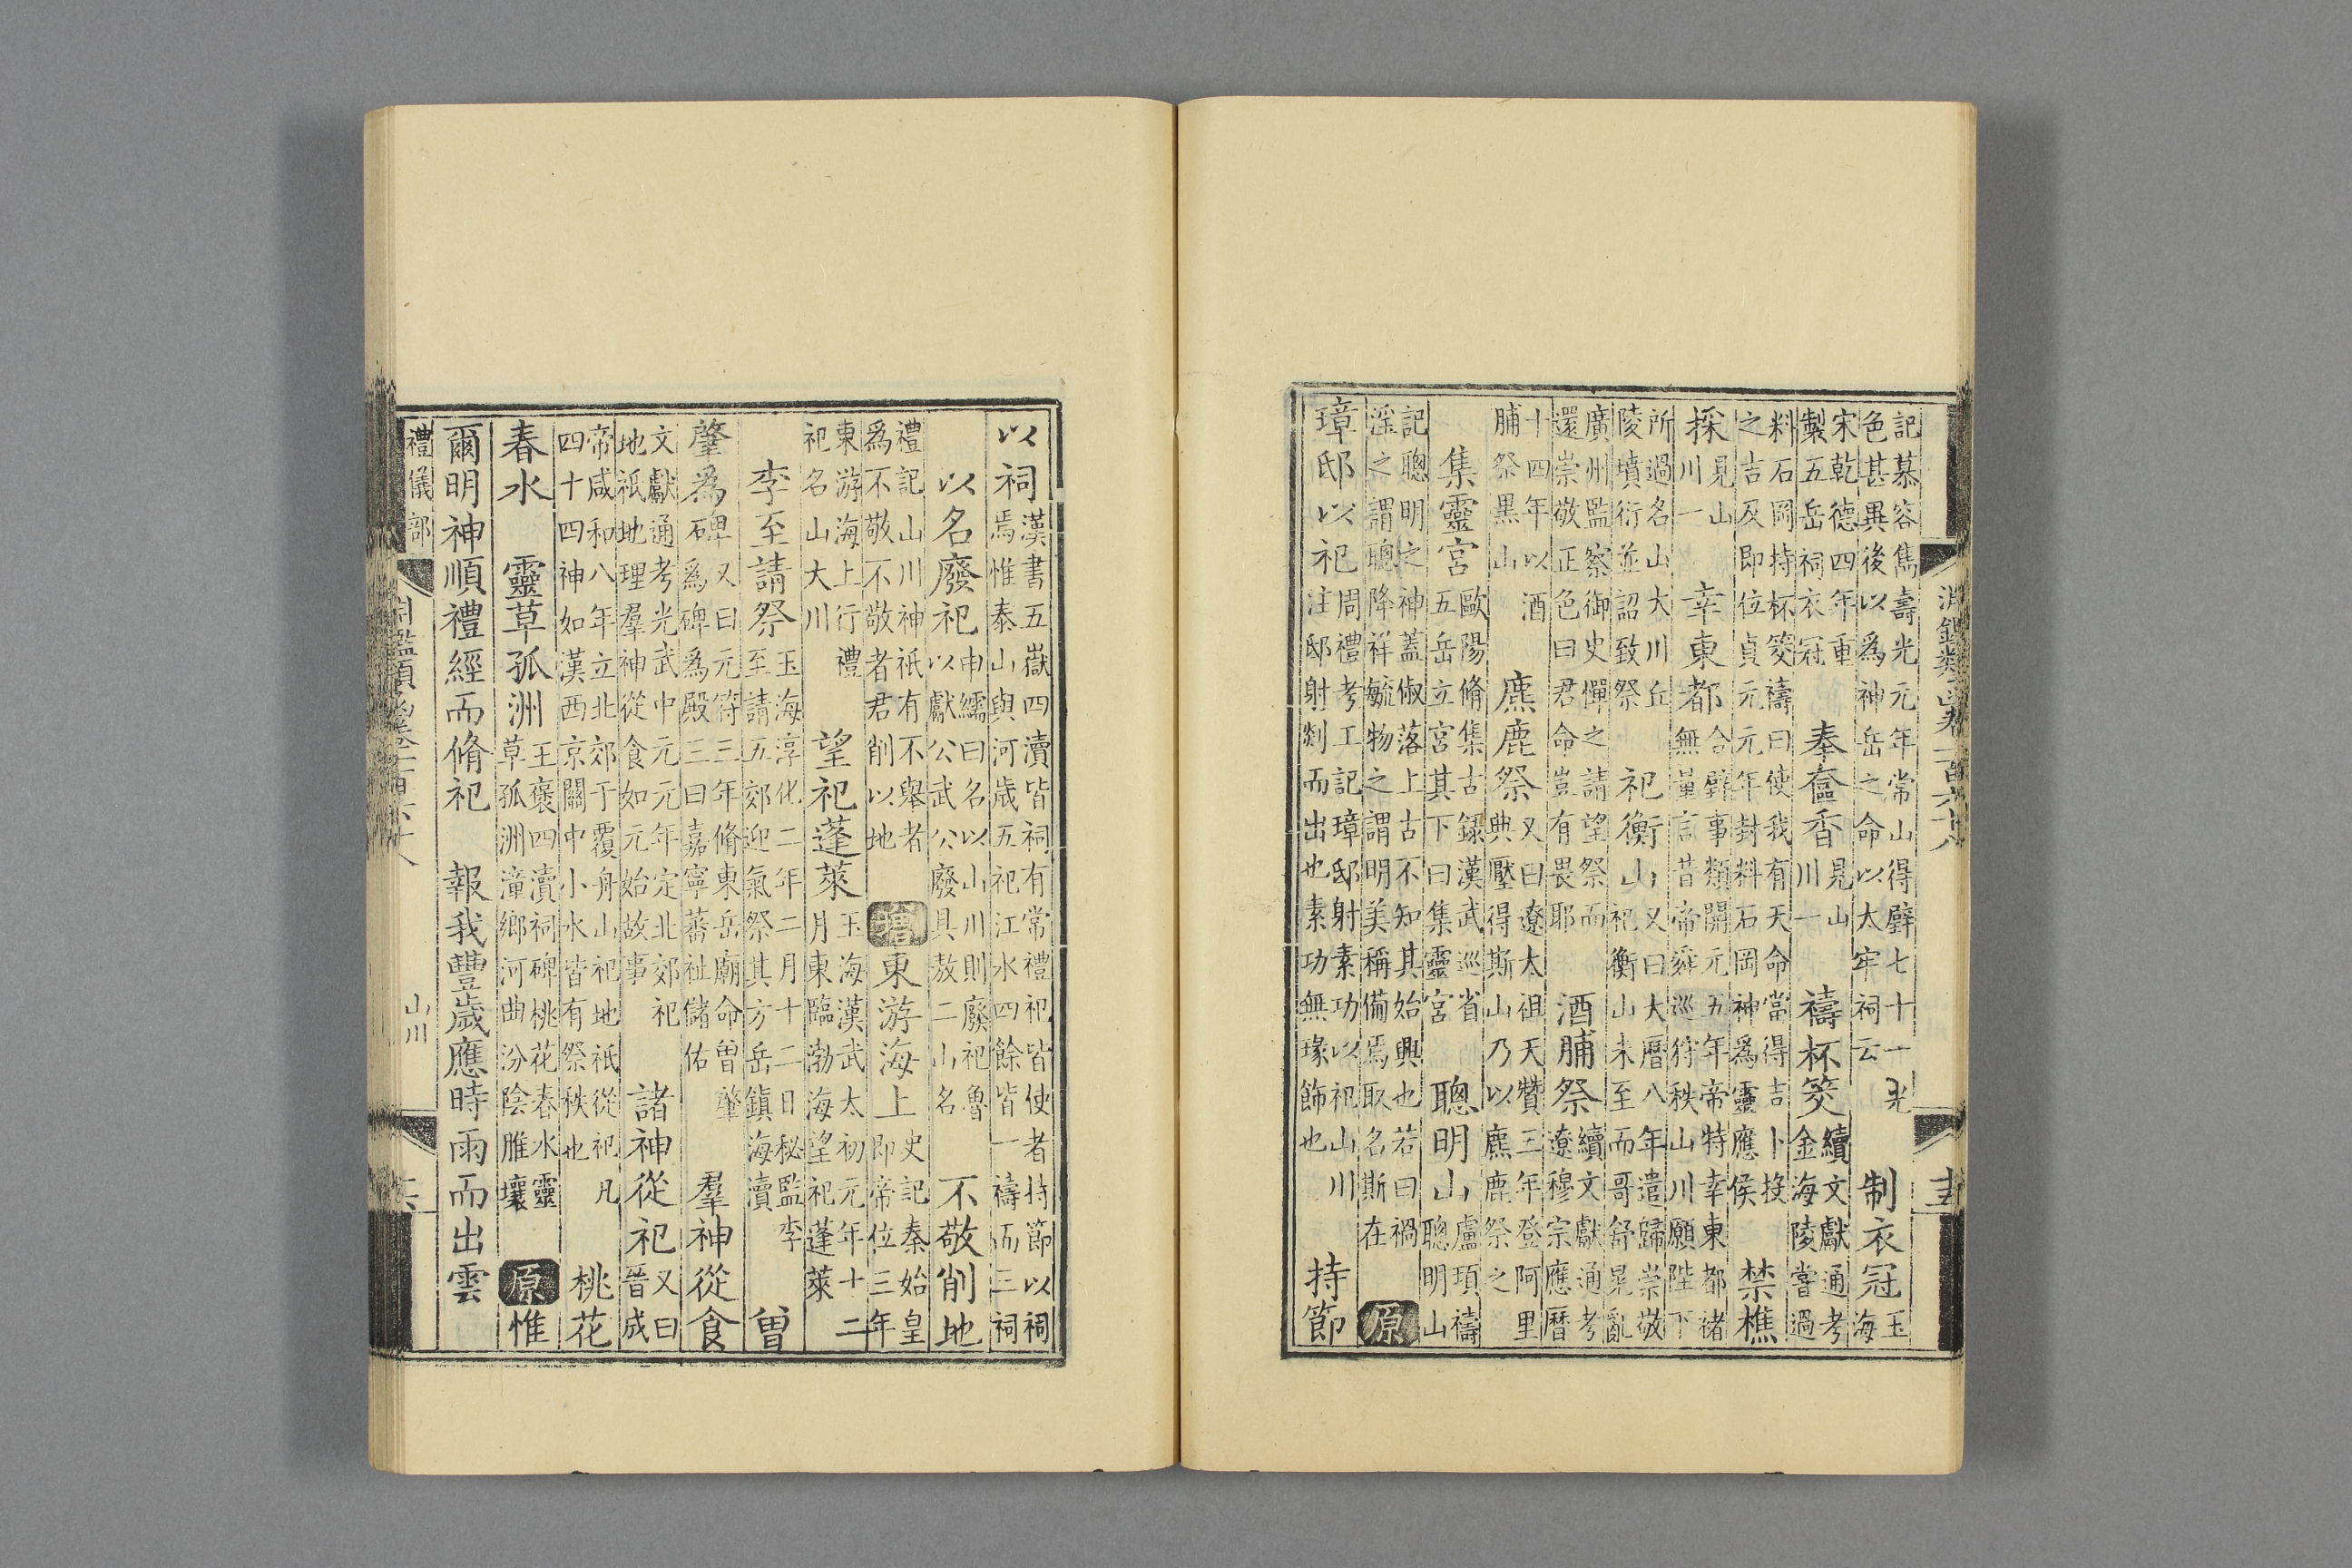 淵鑑類函卷一百六十八
記慕容雋壽光元年常山得璧七十一光
色甚異後以爲神岳之命以太牢祠云
制衣冠
玉
海
宋乾德四年重
製五岳祠衣冠
奉奩香
見山
川一
禱杯筊
續文獻通考
金海陵嘗過
料石岡持杯筊禱曰使我有天命當得吉卜投
之吉及即位貞元元年封料石岡神爲靈應侯
禁樵
採
見山
川一
幸東都
合璧事類開元五年帝特幸東都褚
無量言昔帝舜巡狩秩山川願陛下
所過名山大川丘
陵墳衍並詔致祭
祀衡山
又曰大曆八年遣歸崇敬
祀衡山未至而哥舒晃亂
廣州監察御史憚之請望祭而
還崇敬正色曰君命豈有畏耶
酒脯祭
續文獻通考
遼穆宗應曆
十四年以酒
脯祭黑山
麃鹿祭
又曰遼太祖天贊三年登阿里
典壓得斯山乃以麃鹿祭之
集靈宮
歐陽脩集古録漢武巡省
五岳立宮其下曰集靈宮
聰明山
盧項禱
聰明山
記聰明之神蓋俶落上古不知其始興也若曰禍
淫之謂聰降祥毓物之謂明美稱備焉取名斯在
原
璋邸以祀
周禮考工記璋邸射素功以祀山川
注邸射剡而出也素功無瑑飾也
持節
以祠
漢書五嶽四瀆皆祠有常禮祀皆使者持節以祠
焉惟泰山與河歲五祀江水四餘皆一禱而三祠
以名廢祀
申繻曰名以山川則廢祀魯
以獻公武公廢具敖二山名
不敬削地
禮記山川神祇有不舉者
爲不敬不敬者君削以地
增
東游海上
史記秦始皇
即帝位三年
東游海上行禮
祀名山大川
望祀蓬萊
玉海漢武太初元年十二
月東臨渤海望祀蓬萊
李至請祭
玉海淳化二年二月十二日秘監李
至請五郊迎氣祭其方岳鎮海瀆
曾
肇爲碑
又曰元符三年脩東岳廟命曾肇
爲碑爲殿三曰嘉寧蕃祉儲佑
羣神從食
文獻通考光武中元元年定北郊祀
地祇地理羣神從食如元始故事
諸神從祀
又曰
晉成
帝咸和八年立北郊于覆舟山祀地祇從祀凡
四十四神如漢西京關中小水皆有祭秩也
桃花
春水
靈草孤洲
王褒四瀆祠碑桃花春水靈
草孤洲潼鄉河曲汾陰脽壤
原
惟
爾明神順禮經而脩祀 報我豐歲應時雨而出雲
禮儀部
山川